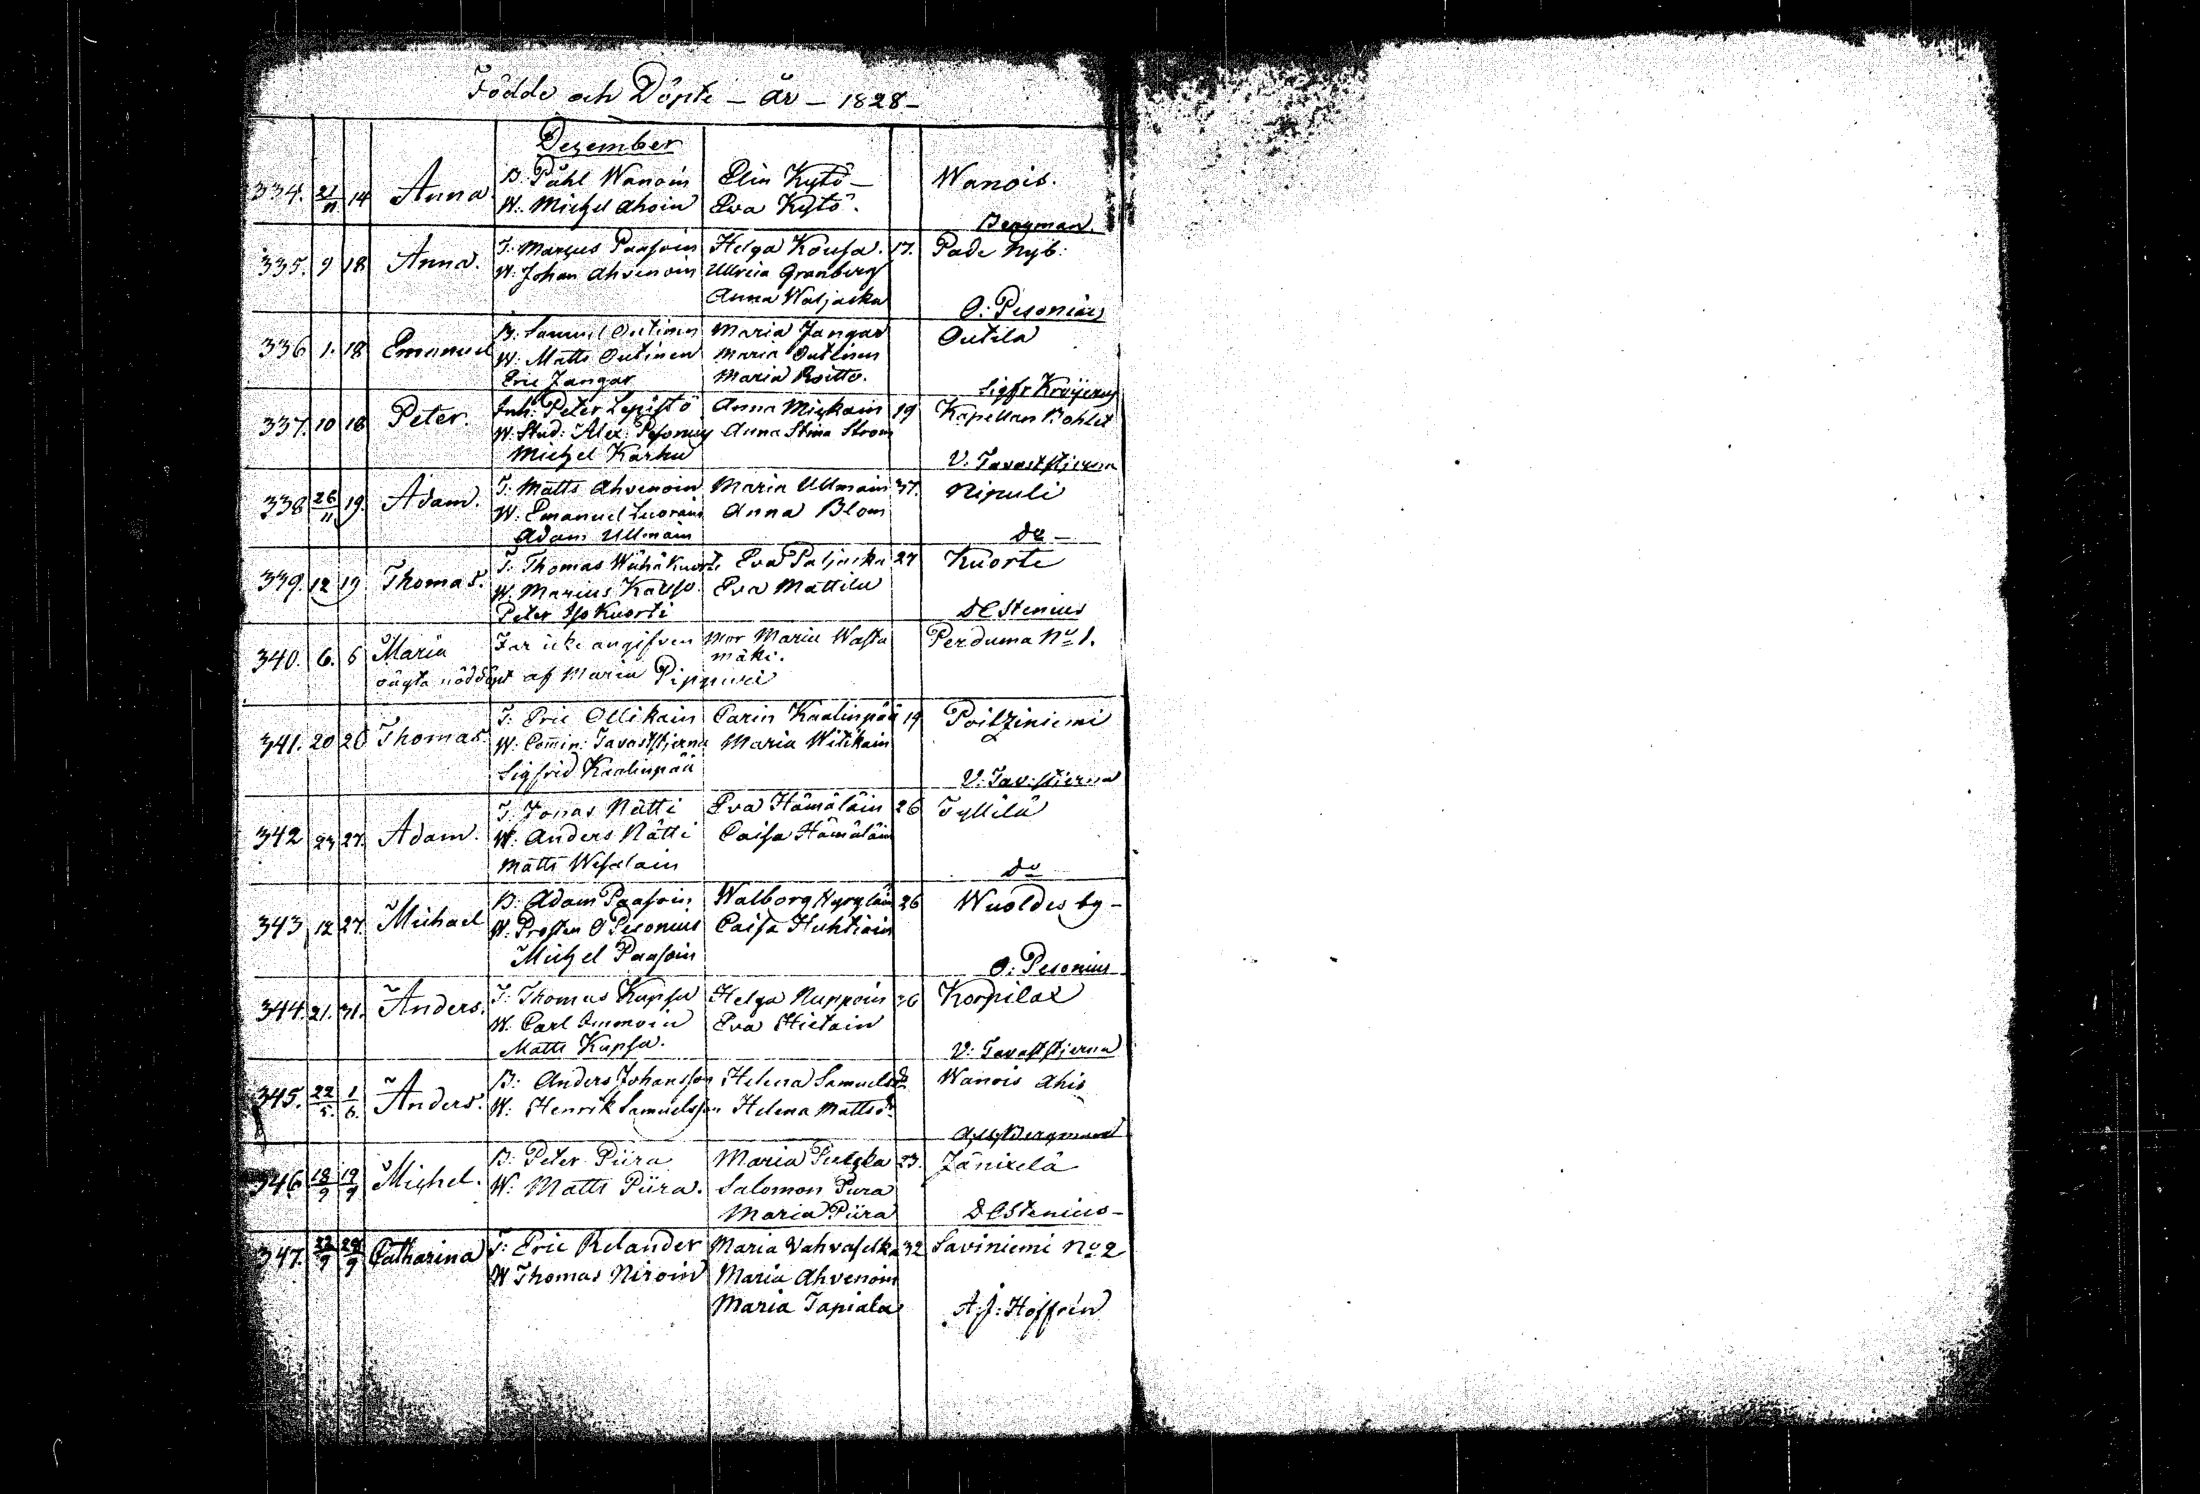 Födde och Döpte – år – 1828 –
Dezember
334. 21/11 14 Anna. B. Påhl Wanoin Elin Kytö – Wanois.
W: Michel Ahoin Eva Kytö.
Bergman
335. 9 18 Anna. T: Marcus Paasoin Helga Kousa. 17. Pade Nyb:
W: Johan Ahvenoin Ulrica Granberg
Anna Waljacka
O: Pesonius
336 1. 18 Emanuel B. Samuel Outinen Maria Jangar Outila
W: Matts Outinen Maria Outinen
Eric Jangar Maria Roitto.
Sigfr Kröijerus
337. 10 18 Peter. Inh: Peter Lepistö Anna Michain 19 Kapellan Bohlet
W. Stud: Alex: Pesonius Anna Stina Strom
Michel Karhu
V. Tavaststjerna
338 26/11 19. Adam. T: Matts Ahvenoin Maria Ullmain 37. Nipuli
W. Emanuel Luorain Anna Blom
Adam Ullmain
do –
339. 12 19 Thomas. T: Thomas Wähäkuorti Eva Paljacka 27 Kuorte
W. Marcus Kauso. Eva Mattila
Peter Iso Kuorti
DE Stenius
340. 6. 6 Maria Far icke angifven Mor Maria Wasta Perduma No 1.
mäki.
oägta nöddöpt af Maria Pippuri
341. 20 26 Thomas. T: Eric Ollikain Carin Kaalinpää 19 Poitziniemi
W: Comin: Tavaststjerna Maria Witikain
Sigfrid Kaalinpää
V: Tav:stjerna
342 23 27. Adam. T. Jonas Nätti Eva Hämäläin 26 Tyllilä
W. Anders Nätti Caisa Hämäläin
Matts Wesalain
do
343 12 27. Michael B: Adam Paasoin Walborg Hyryläin 26 Wuoldes by –
W. Prosten O Pesonius Caisa Huhtiain
Michel Paasoin
O: Pesonius
344. 21. 31. Anders. T: Thomas Kupsa Helga Nuppoin 36 Korpilax
W. Carl Ommoin Eva Hietain
Matts Kupsa.
V: Tavaststjerna
345. 22/5. 1/6. Anders. B: Anders Johansson Helena Samuelsdr Wanois Ahis
W: Henrik Samuelsson Helena Mattsdr
Bergman
346 18/9 19/9 Michel. B: Peter Piira Maria 33. Jänixelä
W: Matts Piira. Salomon Pura
Maria Piira DEStenius –
347. 22/9 28/9 Catharina T: Eric Relander Maria Vahvaselka 32 Saviniemi No 2
W Thomas Niroin Maria Ahvenoin
Maria Tapiala A:J: Hoffrén